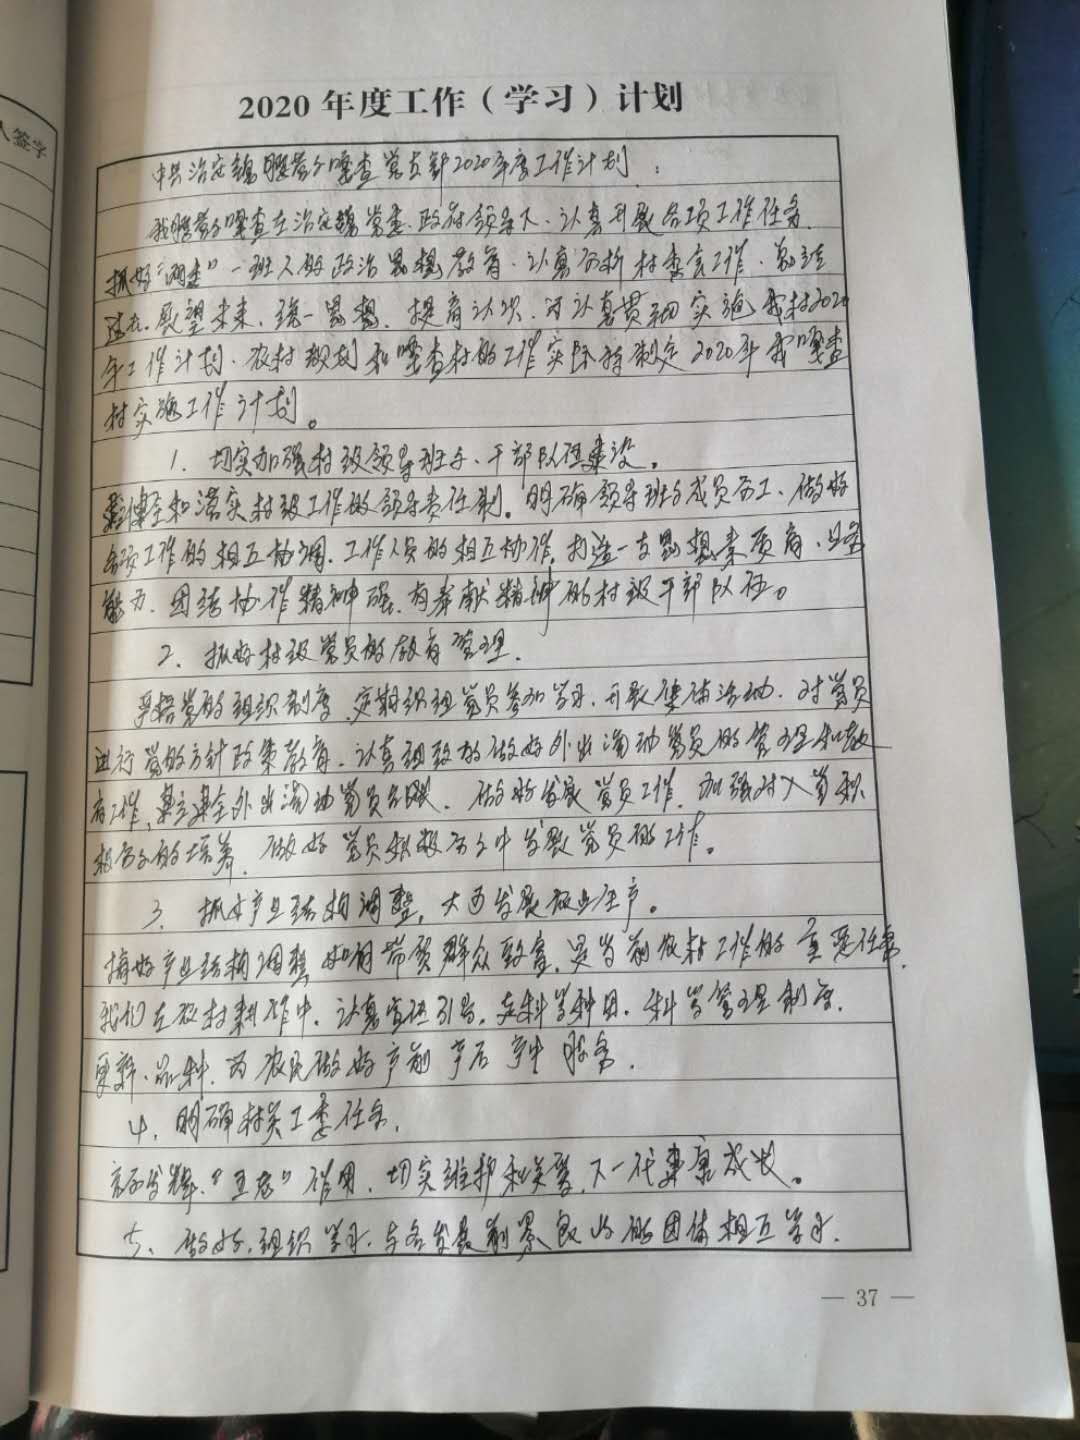 人签字
2020 年度工作（学习）计划
中共治安镇 嘎查党支部2020年度工作计划
我 嘎查在治安镇党委、政府领导下、认真开展各项工作任务
抓好“两委”一班人的政治思想教育、认真分析村委会工作、总结
过去、展望未来、统一思想、提高认识、为认真贯彻实施我村2020
年工作计划、农村规划和嘎查村的工作实际特制定2020年我嘎查
村实施工作计划。
1、切实加强村级领导班子、干部队伍建设。
健全和落实村级工作的领导责任制。明确领导班子成员分工、做好
各项工作的相互协调、工作人员的相互协作、打造一支思想素质高、业务
能力、团结协作精神强、有奉献精神的村级干部队伍。
2、抓好村级党员的教育管理.
严格党的组织制度、定期组织党员参加学习、开展 活动、对党员
进行党的方针政策教育、认真细致的做好外出流动党员的管理和教
育工作, 建立健全外出流动党员台账、做好发展党员工作、加强对入党积
极分子的培养、做好党员积极分子中发展党员的工作。
3、抓好产业结构调整, 大力发展 生产。
搞好产业结构调整, 带领群众致富, 是当前农村工作的重要任务,
我们在农村 作中、认真宣传引导, 走科学种田、科学管理制度、
更新品种、为农民做好产前产后产中服务.
4、明确村关工委任务.
充分发挥“五老”作用、切实维护和关爱下一代健康成长。
5、做好组织学习、与各发展 的团体相互学习.
— 37 —